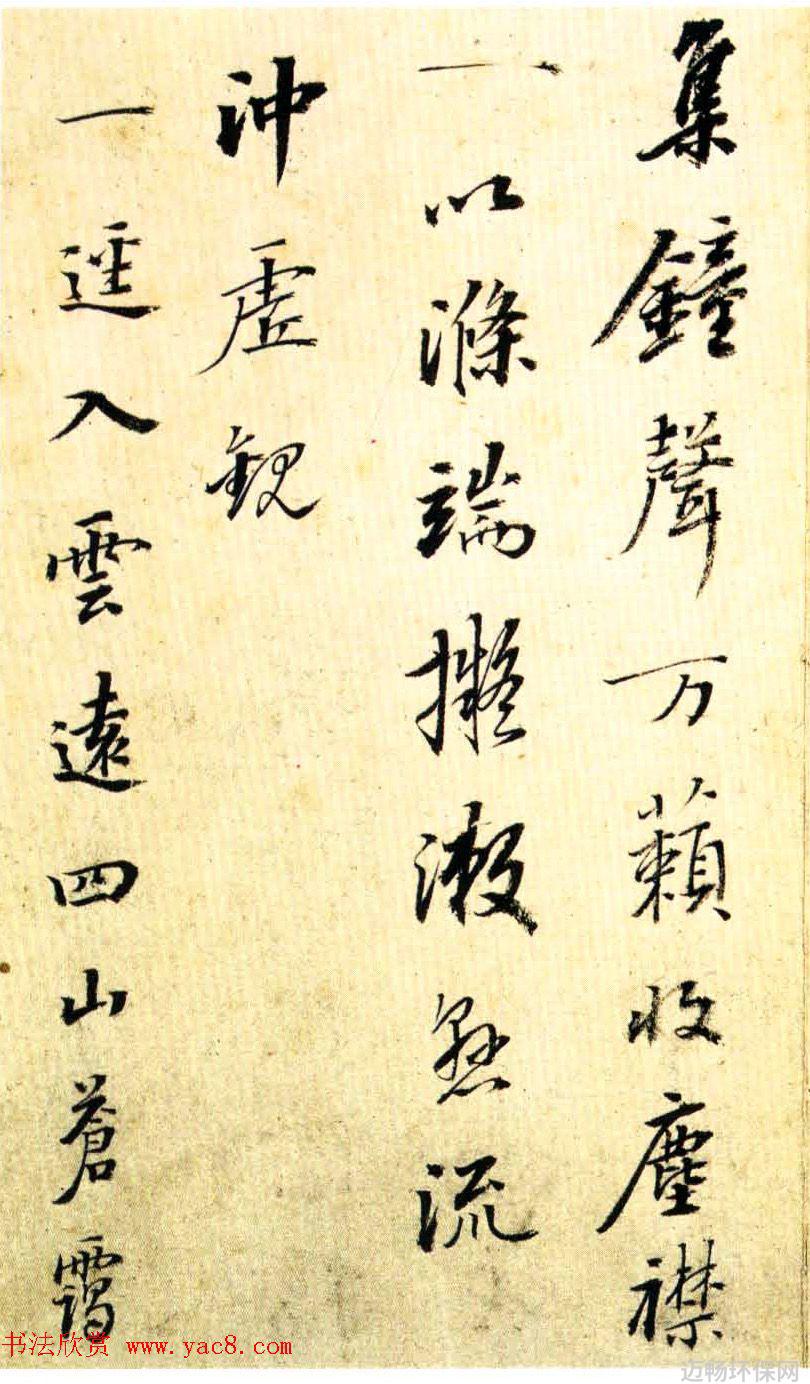 集鐘聲万籟收塵襟
一以滌端擬漱懸流
沖虛觀
一逕入雲遠四山蒼靄
书法欣赏 www.yac8.com
迈畅环保网